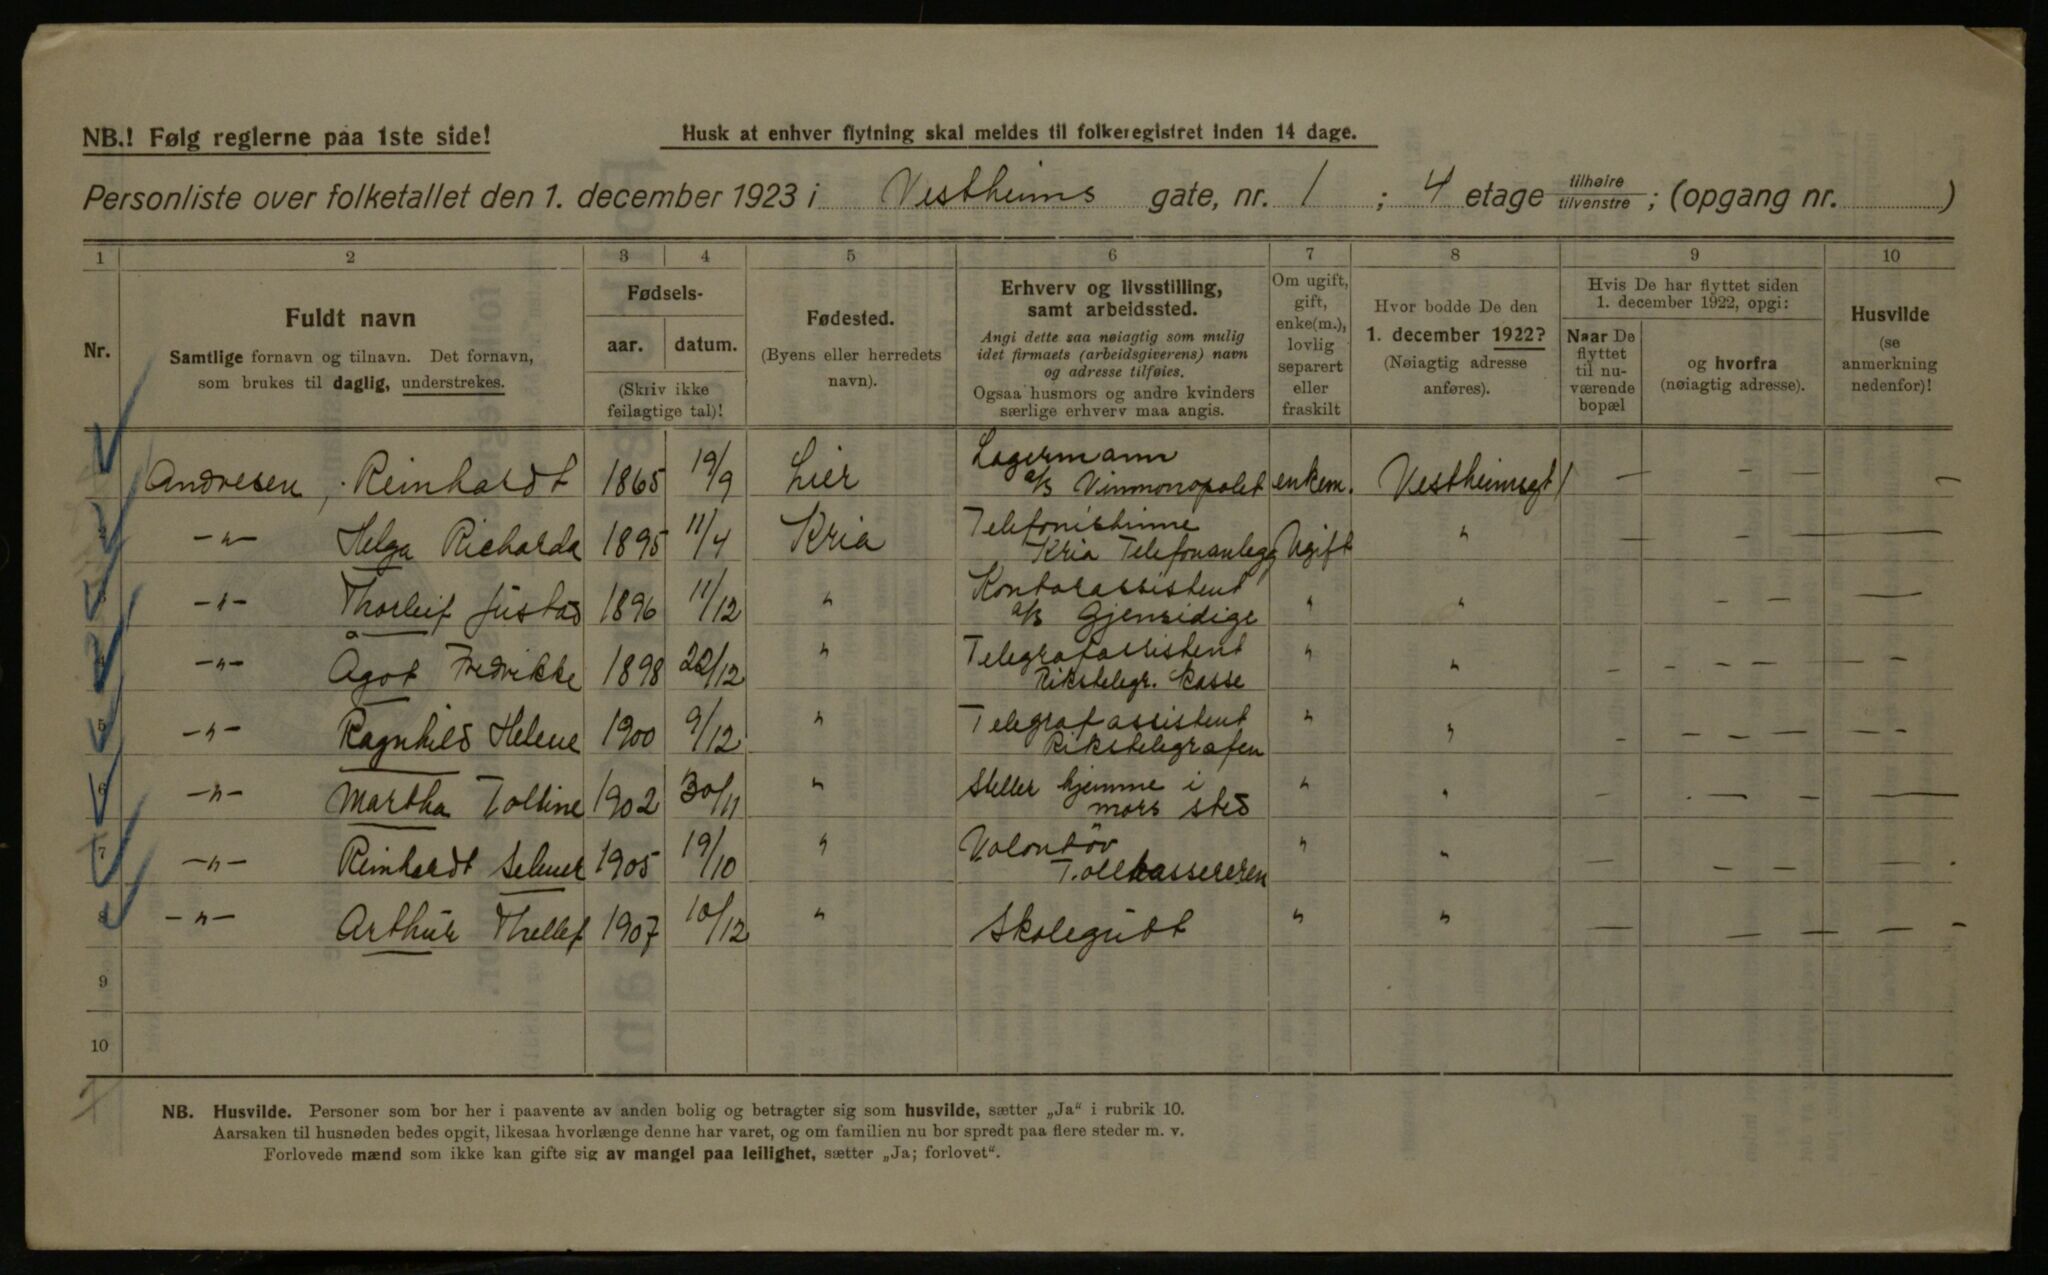 NB.! Følg reglerne paa 1ste side!
Husk at enhver flytning skal meldes til folkeregistret inden 14 dage.
Personliste over folketallet den 1. december 1923 i Vestheims gate, nr. 1 ; 4 etage tilhøire tilvenstre ; (opgang nr. )
1 2 3 4 5 6 7 8 9 10
Nr.
Fuldt navn
Samtlige fornavn og tilnavn. Det fornavn,
som brukes til daglig, understrekes.
Fødsels-
aar. datum.
(Skriv ikke
feilagtige tal)!
Fødested.
(Byens eller herredets
navn).
Erhverv og livsstilling,
samt arbeidssted.
Angi dette saa nøiagtig som mulig
idet firmaets (arbeidsgiverens) navn
og adresse tilføies.
Ogsaa husmors og andre kvinders
særlige erhverv maa angis.
Om ugift,
gift,
enke(m.),
lovlig
separert
eller
fraskilt
Hvor bodde De den
1. december 1922?
(Nøiagtig adresse
anføres).
Hvis De har flyttet siden
1. december 1922, opgi:
Naar De
flyttet
til nu-
værende
bopæl
og hvorfra
(nøiagtig adresse).
Husvilde
(se
anmerkning
nedenfor)!
Andresen, Reinhardt 1865 19/9 Lier Lagermann
a/s Vinmonopolet enkem. Vestheimsgt 1 — - — —
2 —"— Helga Richarda 1895 11/4 Kria Telefonistinne
Kria Telefonanlegg Ugift " — — — —
3 —"— Thorleif Justad 1896 11/12 " Kontorassistent
a/s Gjensidige " " — — —
4 —"— Ågot Fredrikke 1898 22/12 " Telegrafassistent
Rikstelegr. Kasse " " — — — — — — —
5 —"— Ragnhild Helene 1900 9/12 " Telegrafassistent
Rikstelegrafen " " — — — — — — —
6 —"— Martha Toltine 1902 30/11 " Steller hjemme i
mors sted " " — - — — —
7 —"— Reinhardt Selmer 1905 19/10 " Volontør
Tollkassereren " " — — — —
8 —"— Arthur Thellef 1907 10/12 " Skolegutt " " — — — — —
9
10
NB. Husvilde. Personer som bor her i paavente av anden bolig og betragter sig som husvilde, sætter „Ja“ i rubrik 10.
Aarsaken til husnøden bedes opgit, likesaa hvorlænge denne har varet, og om familien nu bor spredt paa flere steder m. v.
Forlovede mænd som ikke kan gifte sig av mangel paa leilighet, sætter „Ja; forlovet“.